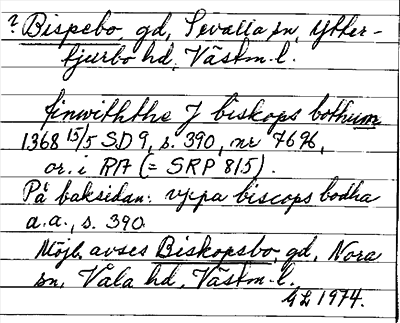 ? Bispebo, gd, Sevalla sn, Ytter-
tjurbo hd, Västm. l.
finwiththe J biskops bothum
1368 15/5 SD 9, s. 390, nr 7696,
or. i RA (= SRP 815).
På baksidan: vppa biscops bodha
a.a., s. 390.
Möjl. avses Biskopsbo, gd, Nora
sn, Våla hd, Västm. l.
GL 1974.